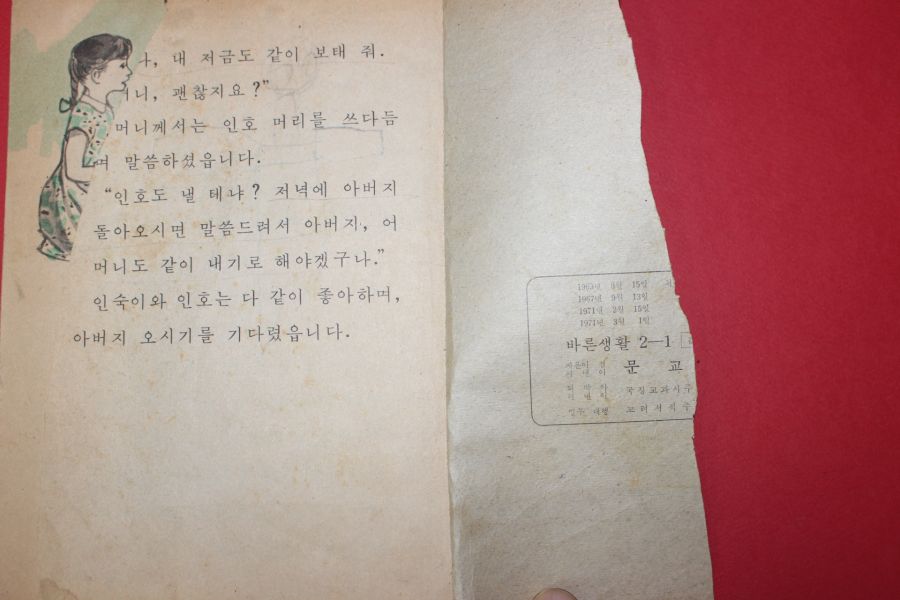 나, 내 저금도 같이 보태 줘.
머니, 괜찮지요?”
머니께서는 인호 머리를 쓰다듬
며 말씀하셨읍니다.
“인호도 낼 테냐? 저녁에 아버지
돌아오시면 말씀드려서 아버지, 어
머니도 같이 내기로 해야겠구나.”
인숙이와 인호는 다 같이 좋아하며,
아버지 오시기를 기다렸읍니다.
15일
1967년 9월 13일
1971년 2월 15일
1971년 3월 1일
바른생활 2—1
문교
국정교과서주
고려서적주